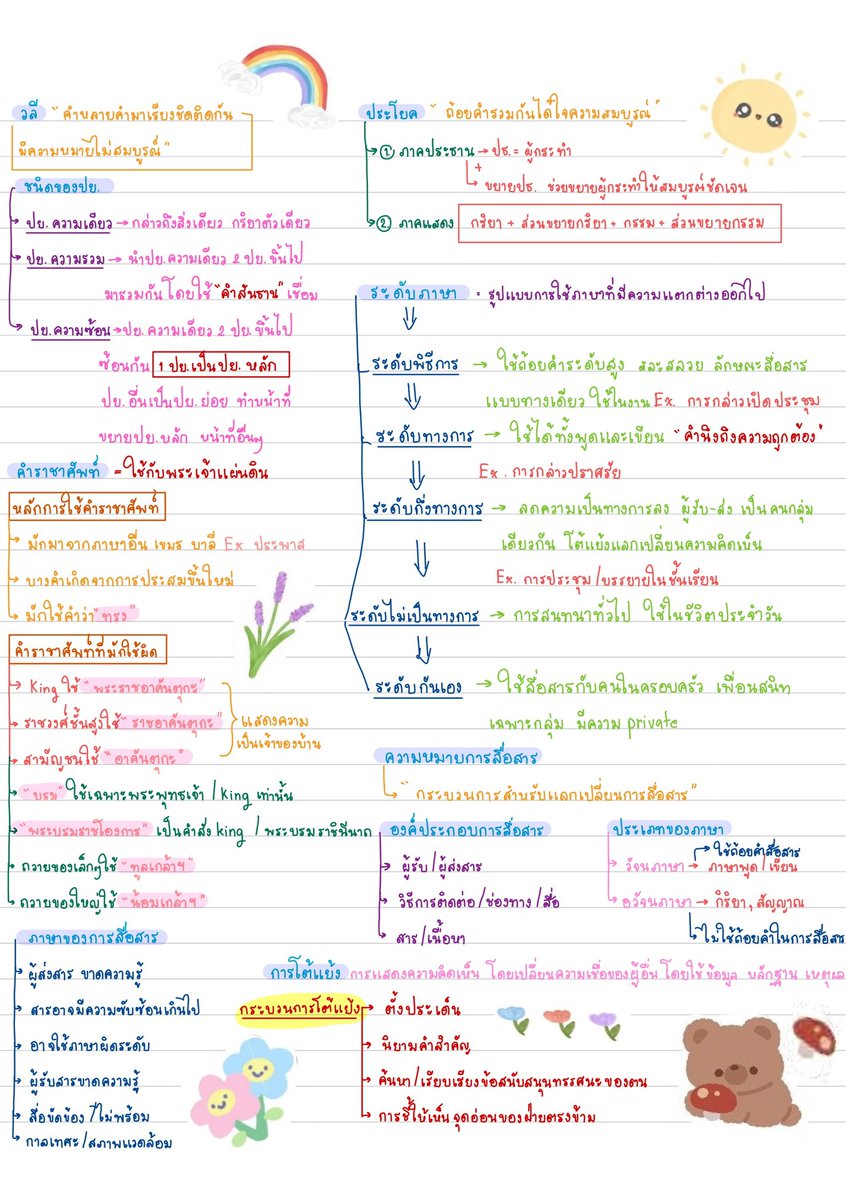 วลี “ คำหลายคำมาเรียงชิดติดกัน
มีความหมายไม่สมบูรณ์”
ชนิดของปย.
ปย.ความเดียว → กล่าวถึงสิ่งเดียว กริยาตัวเดียว
ปย.ความรวม → นำปย.ความเดียว 2 ปย.ขึ้นไป
มารวมกันโดยใช้ “คำสันธาน” เชื่อม
ปย.ความซ้อน → ปย.ความเดียว 2 ปย.ขึ้นไป
ซ้อนกัน 1 ปย.เป็นปย. หลัก
ปย.อื่นเป็นปย.ย่อย ทำหน้าที่
ขยายปย.หลัก
ประโยค “ ถ้อยคำรวมกันได้ใจความสมบูรณ์”
① ภาคประธาน → ปธ. = ผู้กระทำ
+
ขยายปธ. ช่วยขยายผู้กระทำให้สมบูรณ์ชัดเจน
② ภาคแสดง กริยา + ส่วนขยายกริยา + กรรม + ส่วนขยายกรรม
ระดับภาษา = รูปแบบการใช้ภาษาที่มีความแตกต่างออกไป
ระดับพิธีการ → ใช้ถ้อยคำระดับสูง สละสลวย ลักษณะสื่อสาร
แบบทางเดียว ใช้ในงาน Ex. การกล่าวเปิดประชุม
ระดับทางการ → ใช้ได้ทั้งพูดและเขียน “คำนึงถึงความถูกต้อง”
Ex. การกล่าวปราศรัย
ระดับกึ่งทางการ → ลดความเป็นทางการลง ผู้รับ-ส่ง เป็นคนกลุ่ม
เดียวกัน โต้แย้งแลกเปลี่ยนความคิดเห็น
Ex. การประชุม /บรรยายในชั้นเรียน
ระดับไม่เป็นทางการ → การสนทนาทั่วไป ใช้ในชีวิตประจำวัน
ระดับกันเอง → ใช้สื่อสารกับคนในครอบครัว เพื่อนสนิท
เฉพาะกลุ่ม มีความ private
คำราชาศัพท์ = ใช้กับพระเจ้าแผ่นดิน
หลักการใช้คำราชาศัพท์
มักมาจากภาษาอื่น เขมร บาลี Ex ประพาส
บางคำเกิดจากการประสมขึ้นใหม่
มักใช้คำว่า “ทรง”
คำราชาศัพท์ที่มักใช้ผิด
King ใช้ “พระราชอาคันตุกะ”
ราชวงศ์ชั้นสูงใช้ “ราชอาคันตุกะ”
สามัญชนใช้ “อาคันตุกะ”
แสดงความ
เป็นเจ้าของบ้าน
“บรม” ใช้เฉพาะพระพุทธเจ้า / King เท่านั้น
“พระบรมราชโองการ” เป็นคำสั่ง king / พระบรมราชินีนาถ
ถวายของเล็กๆใช้ “ทูลเกล้าฯ”
ถวายของใหญ่ใช้ “น้อมเกล้าฯ”
ความหมายการสื่อสาร
“ กระบวนการสำหรับแลกเปลี่ยนการสื่อสาร”
องค์ประกอบการสื่อสาร
ผู้รับ / ผู้ส่งสาร
วิธีการติดต่อ / ช่องทาง / สื่อ
สาร / เนื้อหา
ประเภทของภาษา
ใช้ถ้อยคำสื่อสาร
วัจนภาษา → ภาษาพูด / เขียน
อวัจนภาษา → กิริยา, สัญญาณ
ไม่ใช้ถ้อยคำในการสื่อสาร
ภาษาของการสื่อสาร
ผู้ส่งสาร ขาดความรู้
สารอาจมีความซับซ้อนเกินไป
อาจใช้ภาษาผิดระดับ
ผู้รับสารขาดความรู้
สื่อขัดข้อง /ไม่พร้อม
กาลเทศะ / สภาพแวดล้อม
การโต้แย้ง การแสดงความคิดเห็น โดยเปลี่ยนความเชื่อของผู้อื่น โดยใช้ข้อมูล หลักฐาน เหตุผล
กระบวนการโต้แย้ง
ตั้งประเด็น
นิยามคำสำคัญ
ค้นหา / เรียบเรียงข้อสนับสนุนทรรศนะของตน
การชี้ให้เห็นจุดอ่อนของฝ่ายตรงข้าม